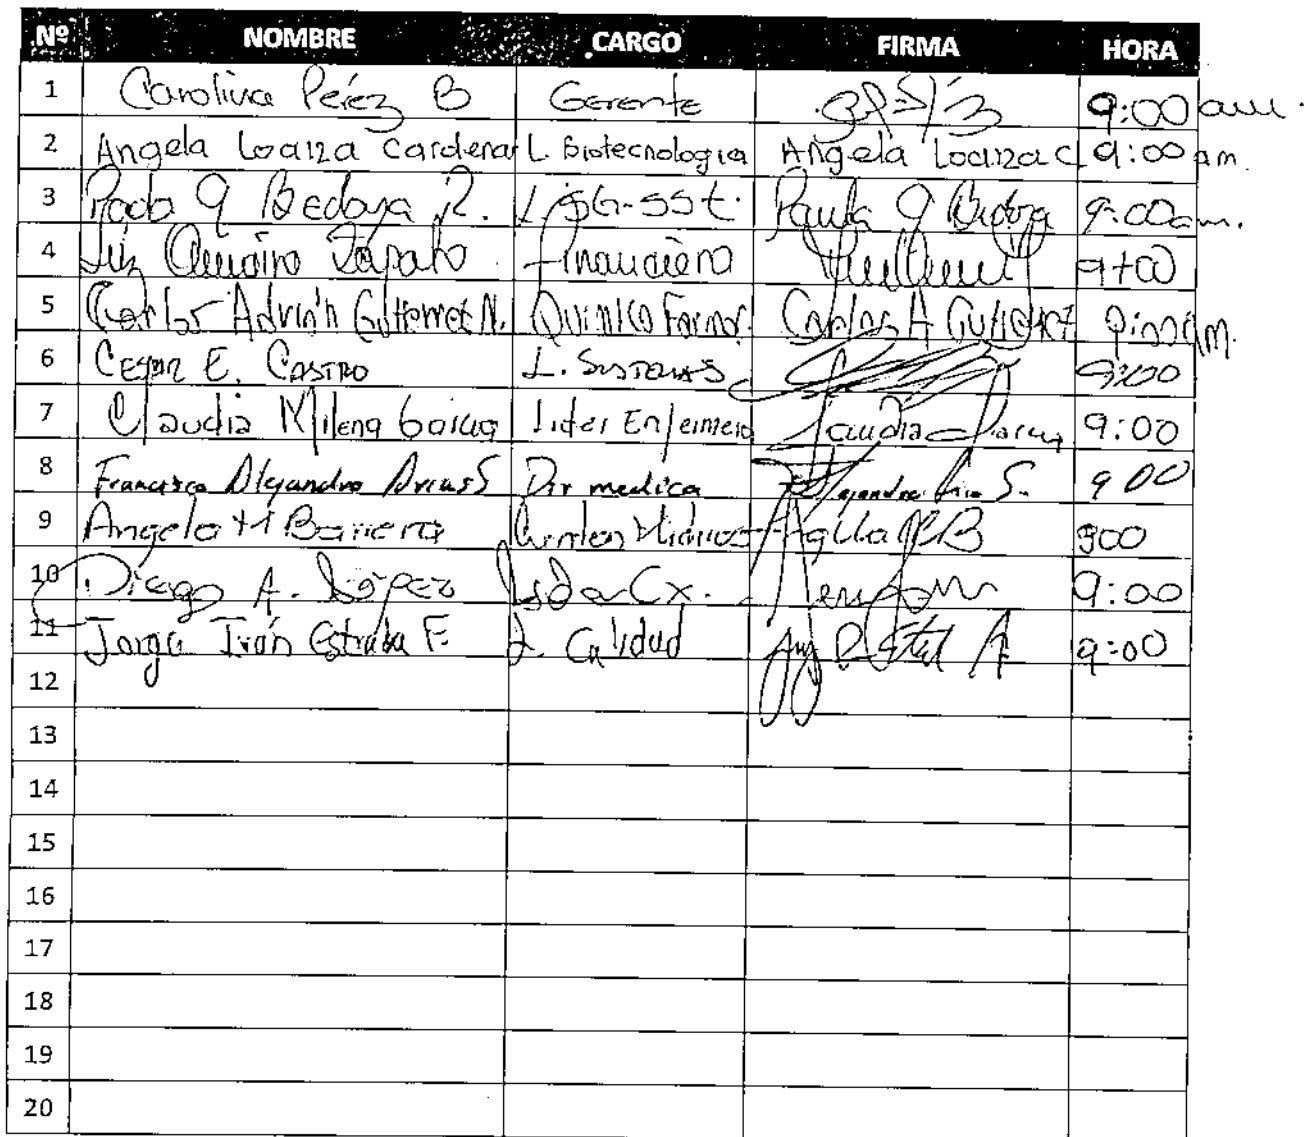 Nº NOMBRE CARGO FIRMA HORA
1 Carolina Pérez B Gerente 9:00 am.
2 Angela Loaiza Cardenas L. Biotecnologia Angela Loaiza C 9:00 am.
3 Paola Bedoya R. L. SG-SST. Paula Bedoya 9:00 am.
4 Zapata Financiero 9:00
5 Carlos Adrián Gutierrez N. Químico Farmac. Carlos A Gutierrez 9:00 am.
6 Cesar E. Castro L. Sistemas 9:00
7 Claudia Milena Garcia Lider Enfermeria Claudia Garcia 9:00
8 Francisco Alejandro Arias S Dir medica Alejandro Arias S. 9 00
9 Angela M Barrera 900
10 Diego A. López Lider Cx. 9:00
11 Jorge Iván Estrada F L. Calidad 9:00
12
13
14
15
16
17
18
19
20